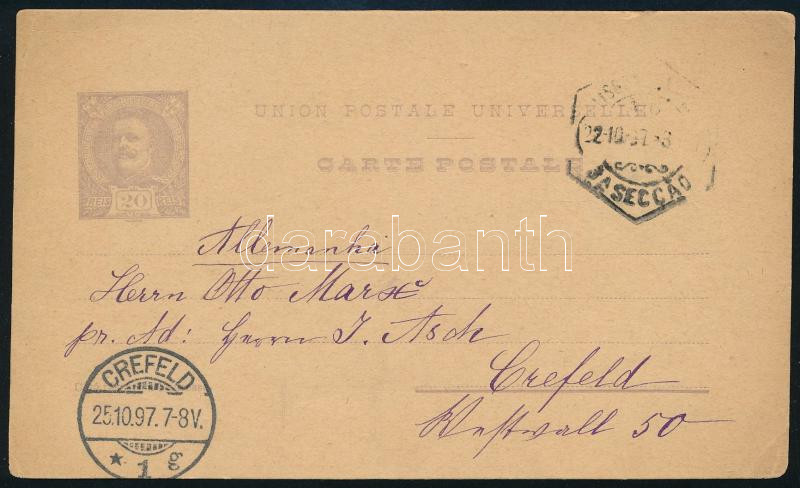 UNION POSTALE UNIVERSELLE
CARTE POSTALE
REIS 20 REIS
22-10-97
3A SECÇÃO
darabanth
Allemanha
Herrn Otto Marx
pr. Ad: Herrn I. Asch
Crefeld
Westwall 50
CREFELD
25.10.97. 7-8V.
* 1 g